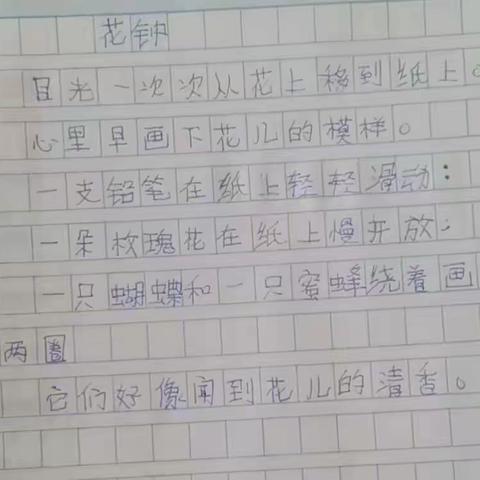 花钟
目光一次次从花上移到纸上。
心里早画下花儿的模样。
一支铅笔在纸上轻轻滑动：
一朵玫瑰花在纸上慢开放：
一只蝴蝶和一只蜜蜂绕着画
两圈
它们好像闻到花儿的清香。